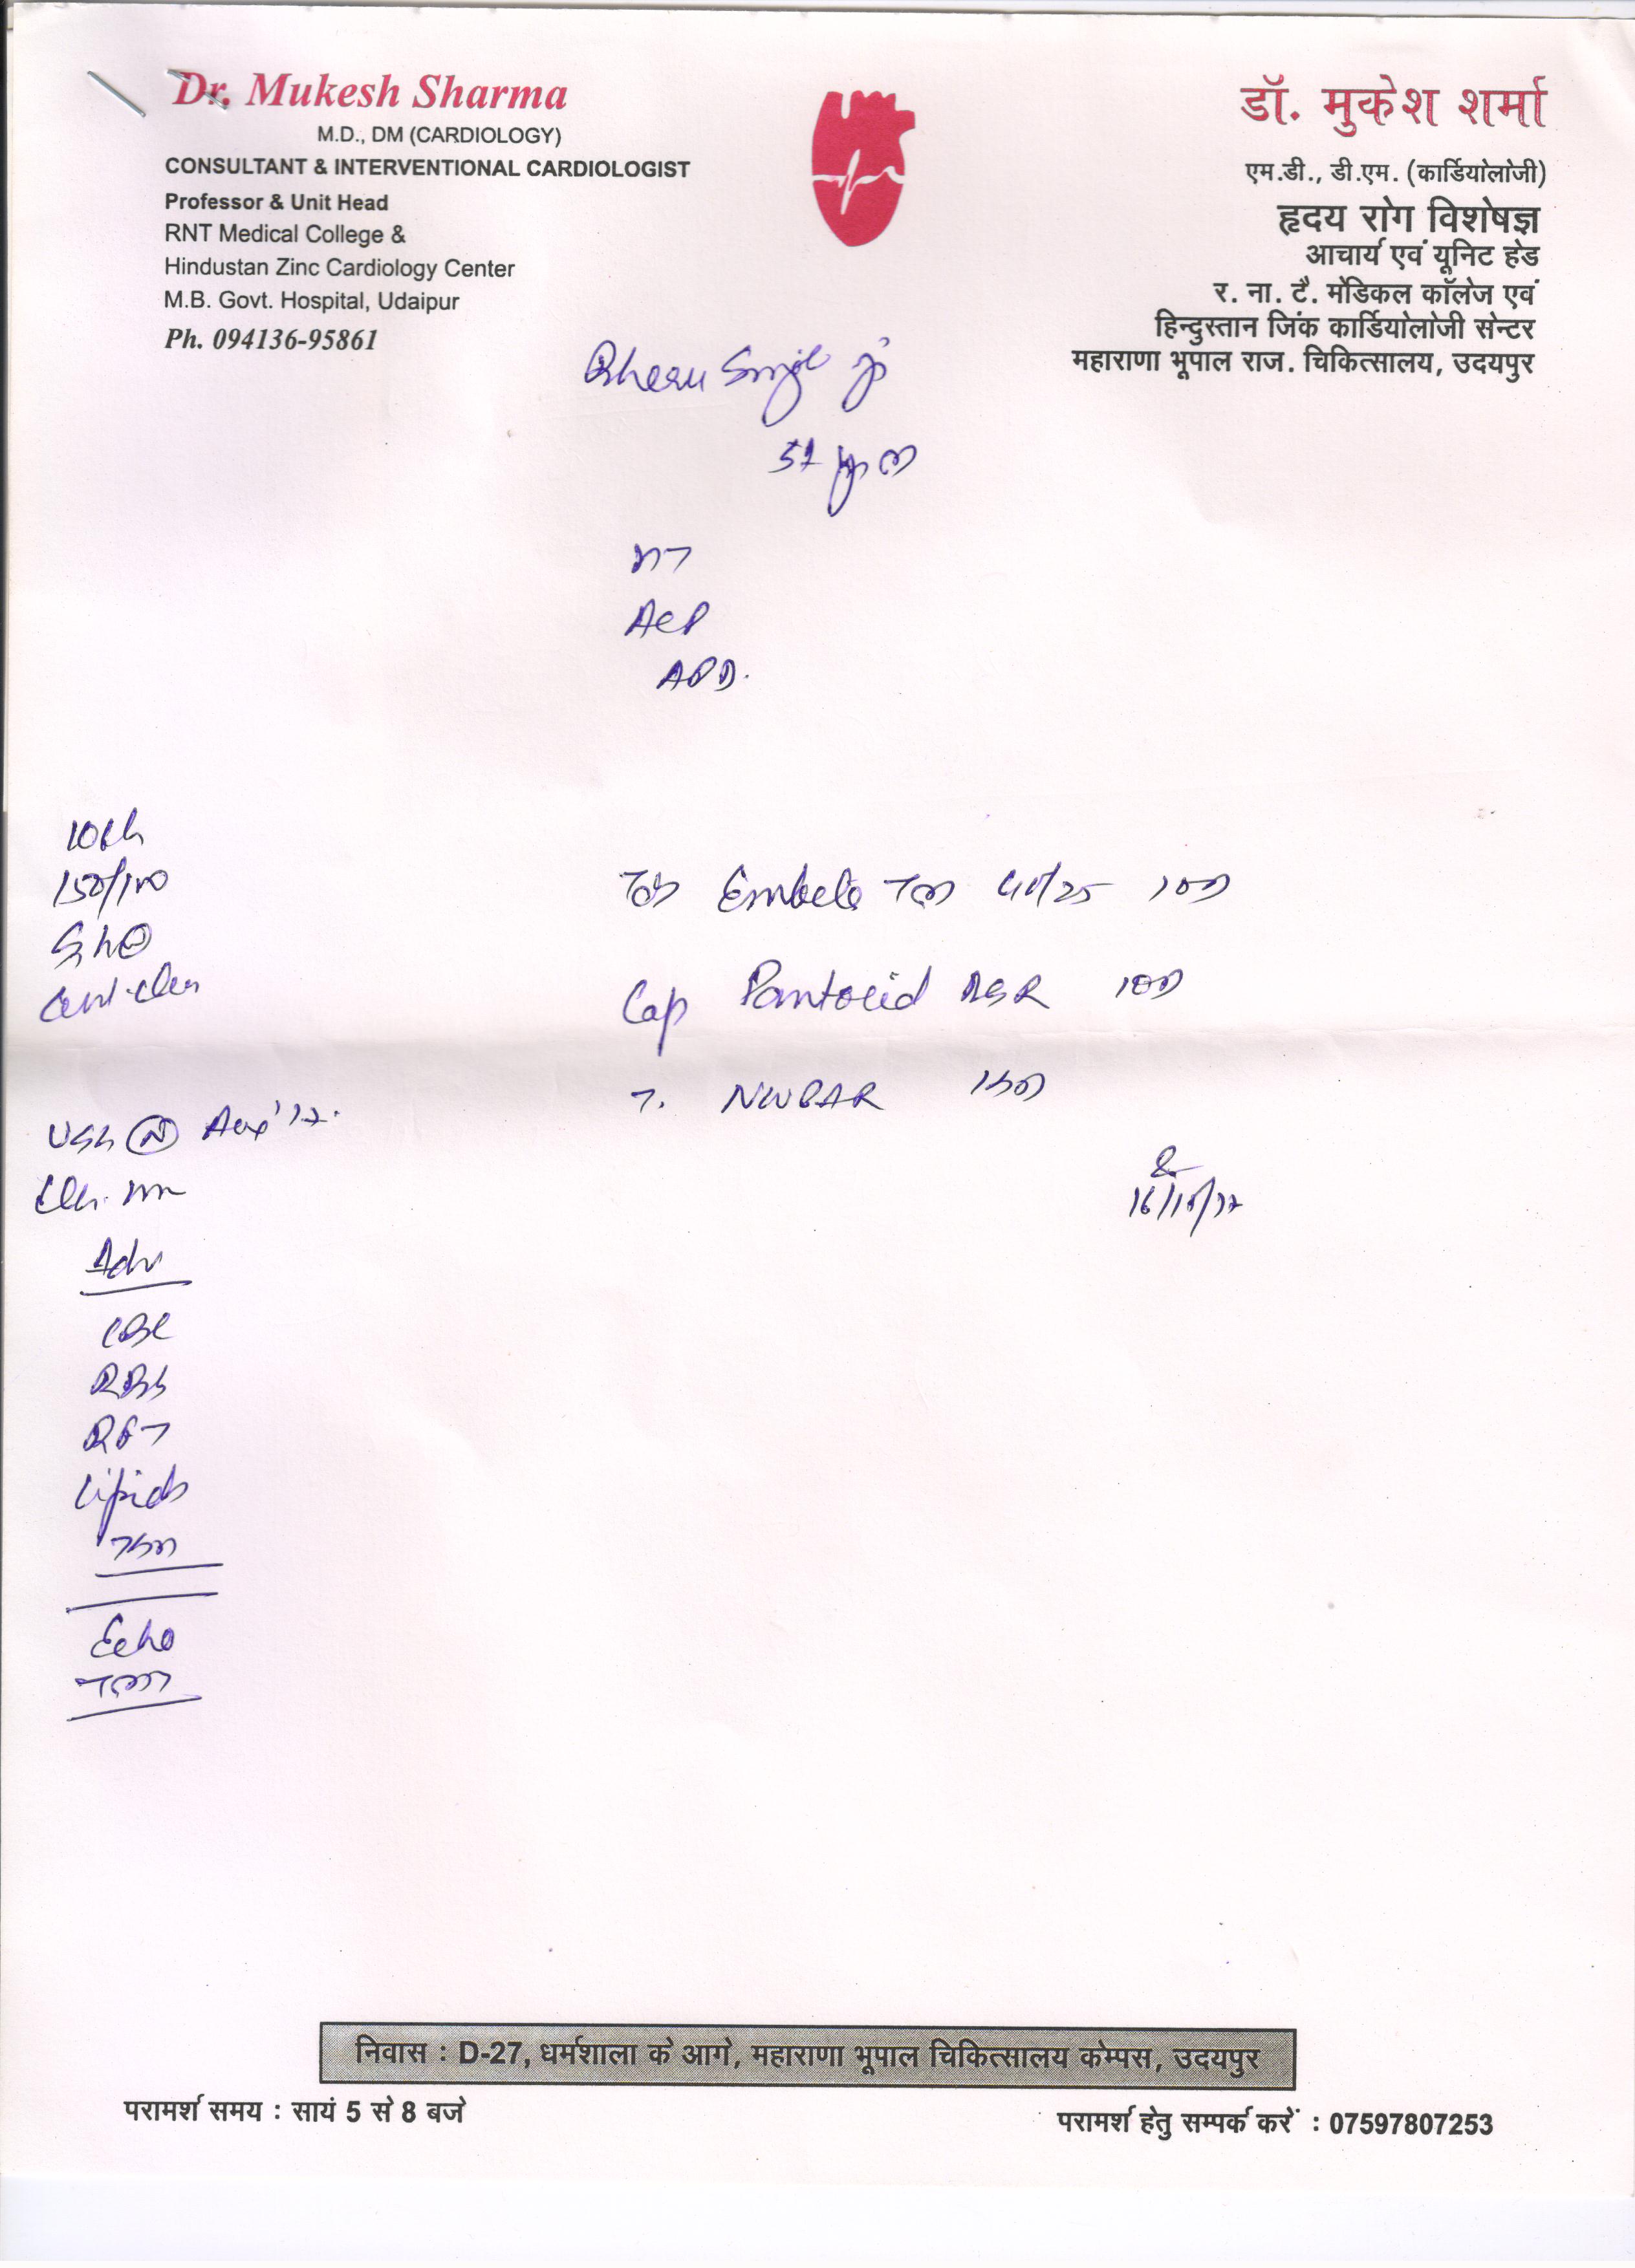 Dr. Mukesh Sharma
M.D., DM (CARDIOLOGY)
CONSULTANT & INTERVENTIONAL CARDIOLOGIST
Professor & Unit Head
RNT Medical College &
Hindustan Zinc Cardiology Center
M.B. Govt. Hospital, Udaipur
Ph. 094136-95861
डॉ. मुकेश शर्मा
एम.डी., डी.एम. (कार्डियोलोजी)
हृदय रोग विशेषज्ञ
आचार्य एवं यूनिट हेड
र. ना. टै. मेडिकल कॉलेज एवं
हिन्दुस्तान जिंक कार्डियोलोजी सेन्टर
महाराणा भूपाल राज. चिकित्सालय, उदयपुर
Bheru Singh ji
51
APD.
150/100
Tab 40/25 1OD
Cap Pantocid DSR 1OD
T. 1OD
USG (N)
16/10/17
Adv
CBC
RBS
RFT
Lipids
TSH
Echo
TMT
निवास : D-27, धर्मशाला के आगे, महाराणा भूपाल चिकित्सालय केम्पस, उदयपुर
परामर्श समय : सायं 5 से 8 बजे
परामर्श हेतु सम्पर्क करें : 07597807253